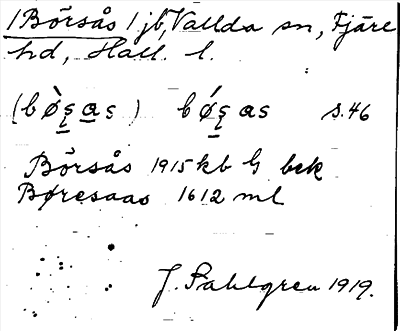 /Börsås/ jb, Vallda sn, Fjäre
hd, Hall. l.
(bø̀s̨as) bǿs̨as s. 46
Börsås 1915 kb G bek
Børesaas 1612 ml
J. Sahlgren 1919.